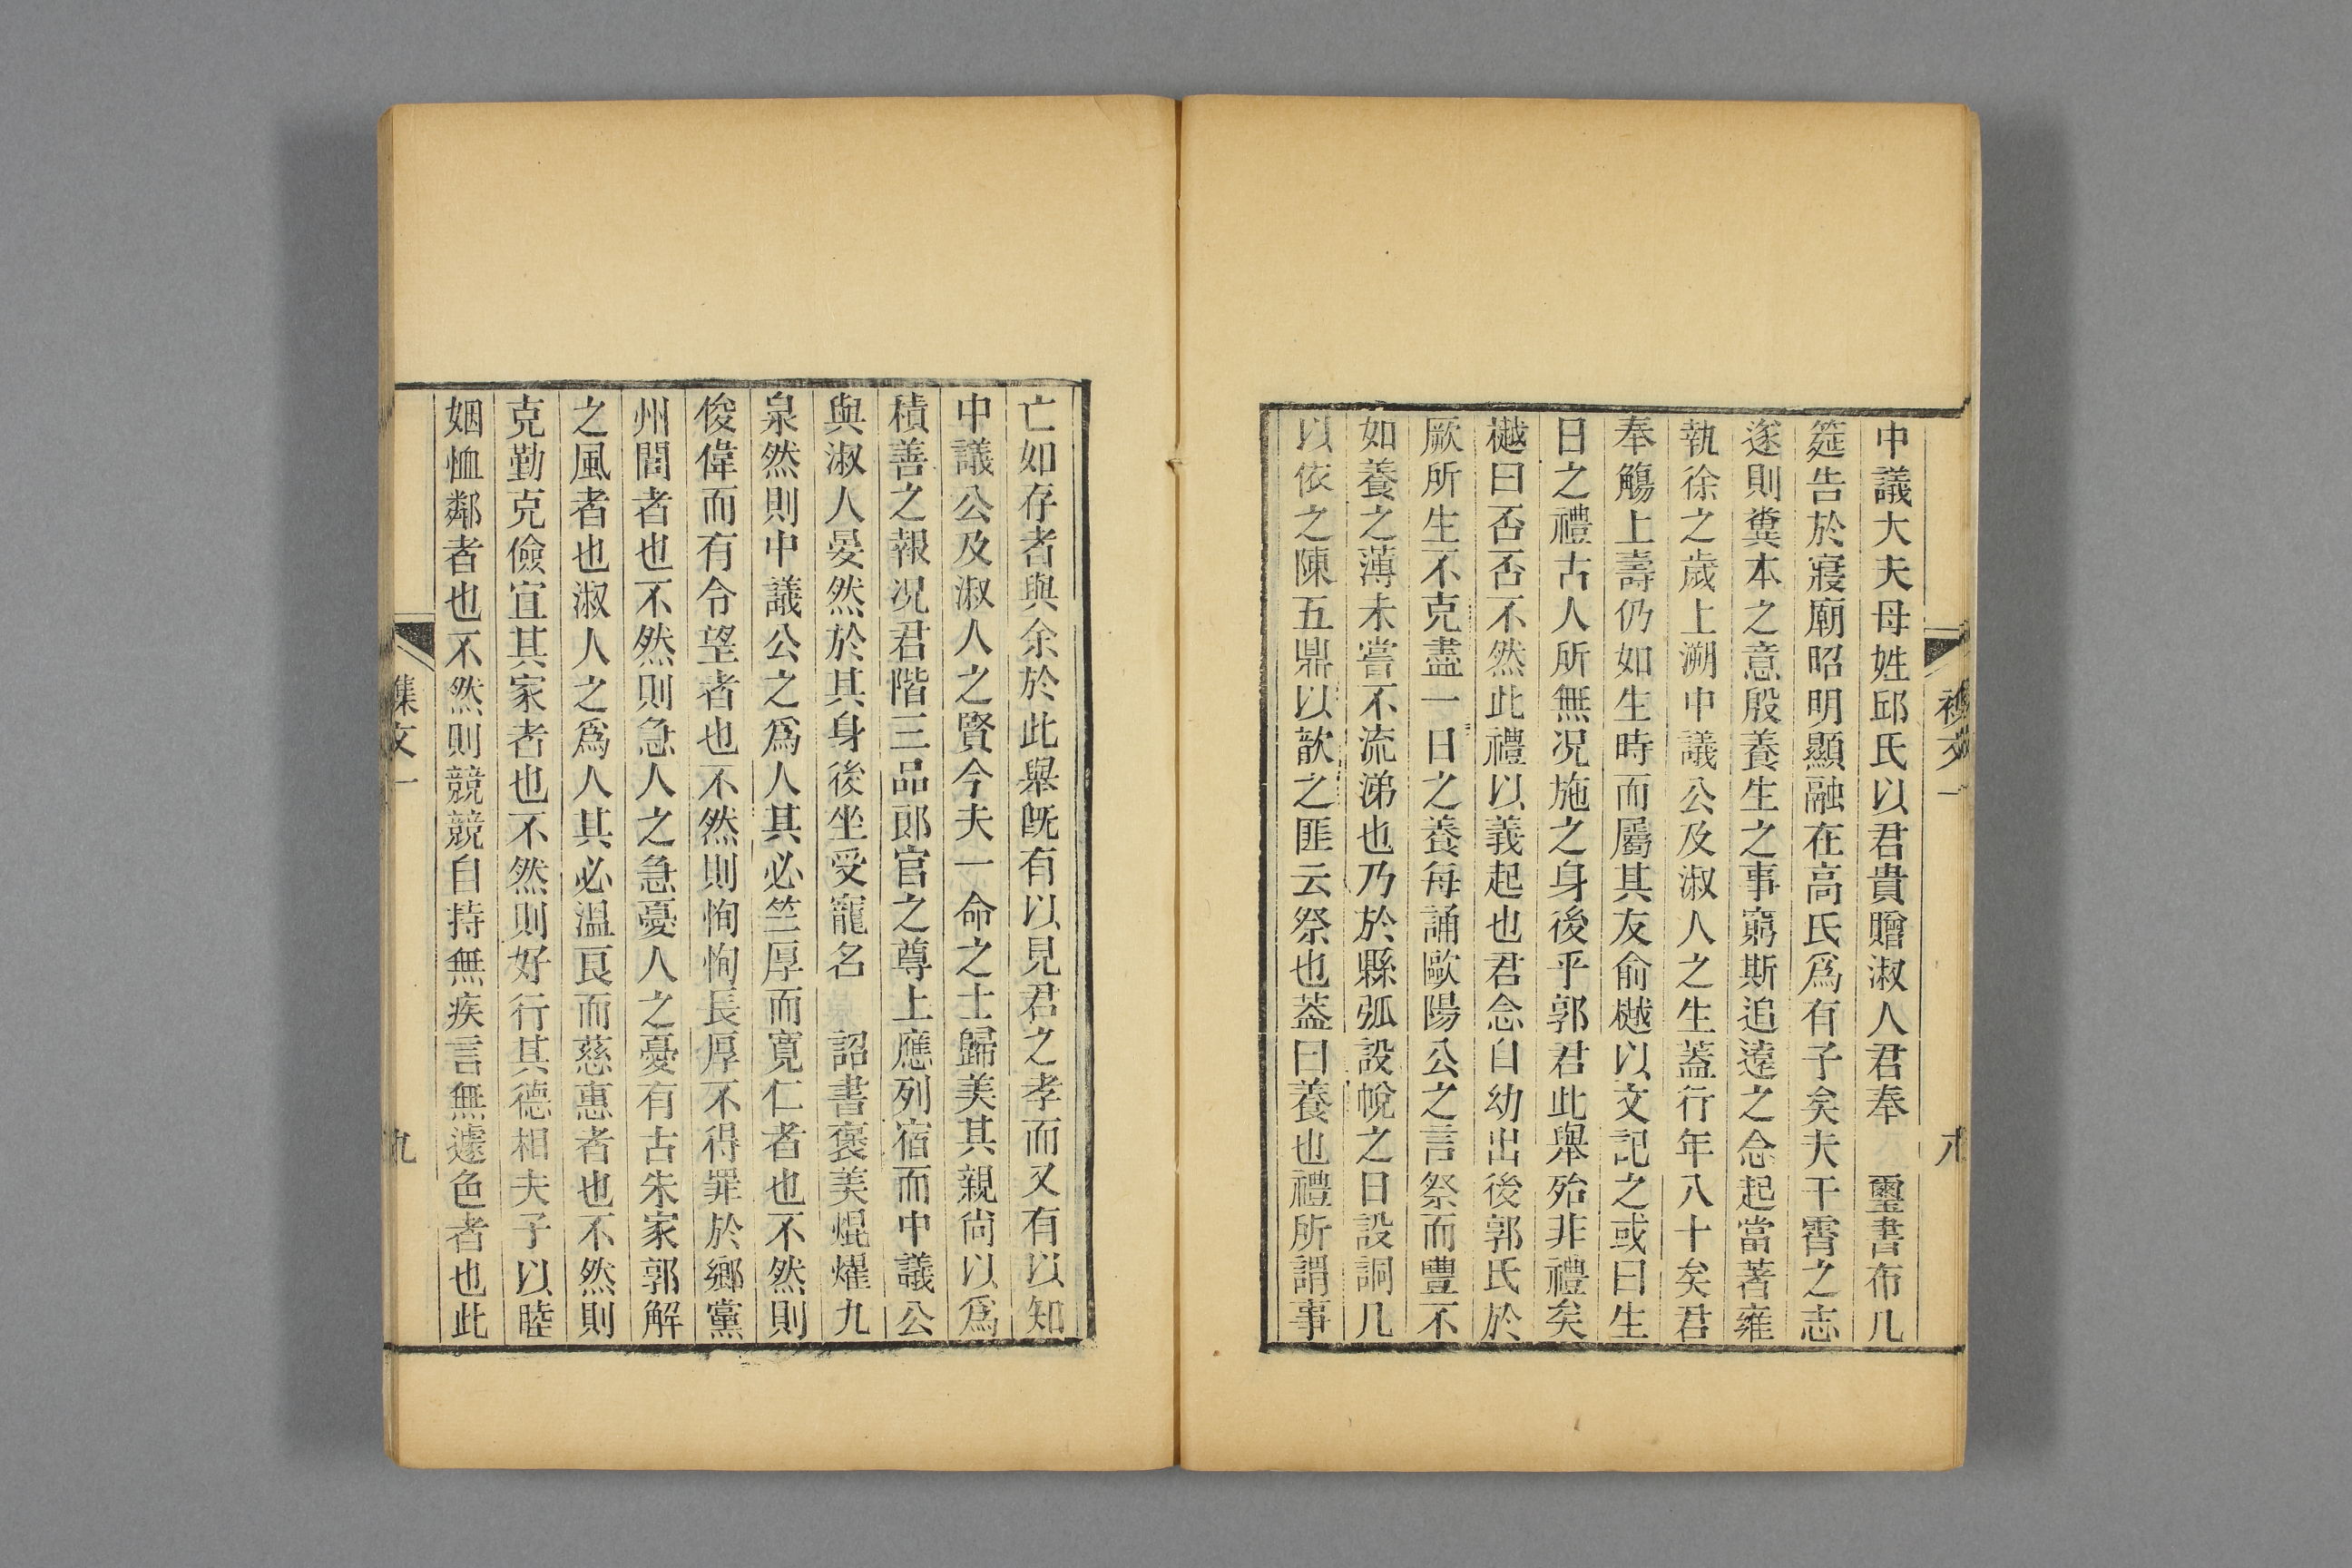 中議大夫母姓邱氏以君貴贈淑人君奉　璽書布几
筵告於寢廟昭明顯融在高氏爲有子矣夫干霄之志
遂則糞本之意殷養生之事窮斯追遠之念起當著雍
執徐之歲上溯中議公及淑人之生蓋行年八十矣君
奉觴上壽仍如生時而屬其友俞樾以文記之或曰生
日之禮古人所無况施之身後乎郭君此舉殆非禮矣
樾曰否否不然此禮以義起也君念自幼出後郭氏於
厥所生不克盡一日之養每誦歐陽公之言祭而豐不
如養之薄未嘗不流涕也乃於縣弧設帨之日設詷几
以依之陳五鼎以歆之匪云祭也葢曰養也禮所謂事
亡如存者與余於此舉旣有以見君之孝而又有以知
中議公及淑人之賢今夫一命之士歸美其親尙以爲
積善之報况君階三品郎官之尊上應列宿而中議公
與淑人晏然於其身後坐受寵名　詔書褒美焜燿九
泉然則中議公之爲人其必竺厚而寬仁者也不然則
俊偉而有令望者也不然則恂恂長厚不得罪於鄉黨
州閭者也不然則急人之急憂人之憂有古朱家郭解
之風者也淑人之爲人其必溫良而慈惠者也不然則
克勤克儉宜其家者也不然則好行其德相夫子以睦
姻恤鄰者也不然則競競自持無疾言無遽色者也此
襍文一
八
集文一
九